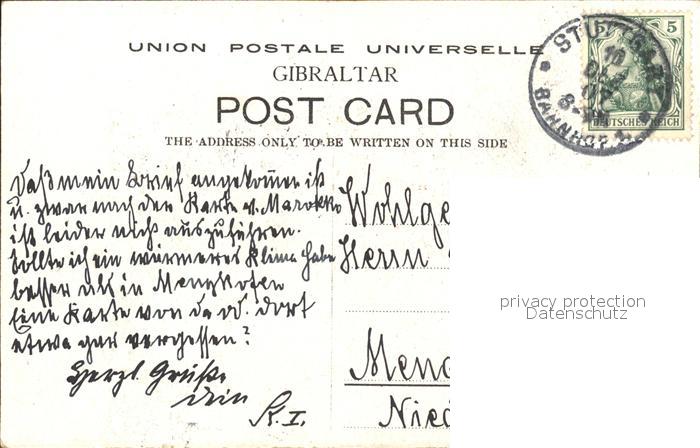 UNION POSTALE UNIVERSELLE
GIBRALTAR
POST CARD
THE ADDRESS ONLY TO BE WRITTEN ON THIS SIDE
STUTTGART
BAHNHOF
5
DEUTSCHES REICH
Daß mein Brief angekommen ist
u. zwar nach der Karte v. Marokko
ist leider nicht auszuführen.
Sollte ich ein wärmeres Klima habe
besser als in Mengkofen
Eine Karte von da od. dort
etwa gar vergessen?
Herzl. Grüße
dein
K. I.
Wohlge
Herrn
Meng
Nied
privacy protection
Datenschutz